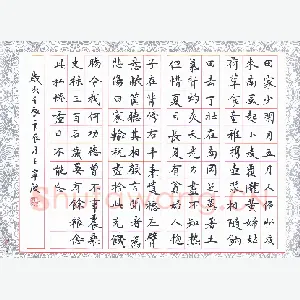 田家少閑月五月人倍忙夜
來南風起小麥覆隴黃婦姑
荷簞食童稚攜壺漿相隨餉
田去丁壯在南岡足蒸暑土
氣背灼炎天光力盡不知熱
但惜夏日長復有貧婦人抱
子在背傍右手秉遺穗左臂
懸敝筐聽其相顧言聞者為
悲傷田家輸稅盡拾此充饑
腸今我何功德曾不事農桑
吏祿三百石歲晏有餘糧念
此私自愧盡日不能忘